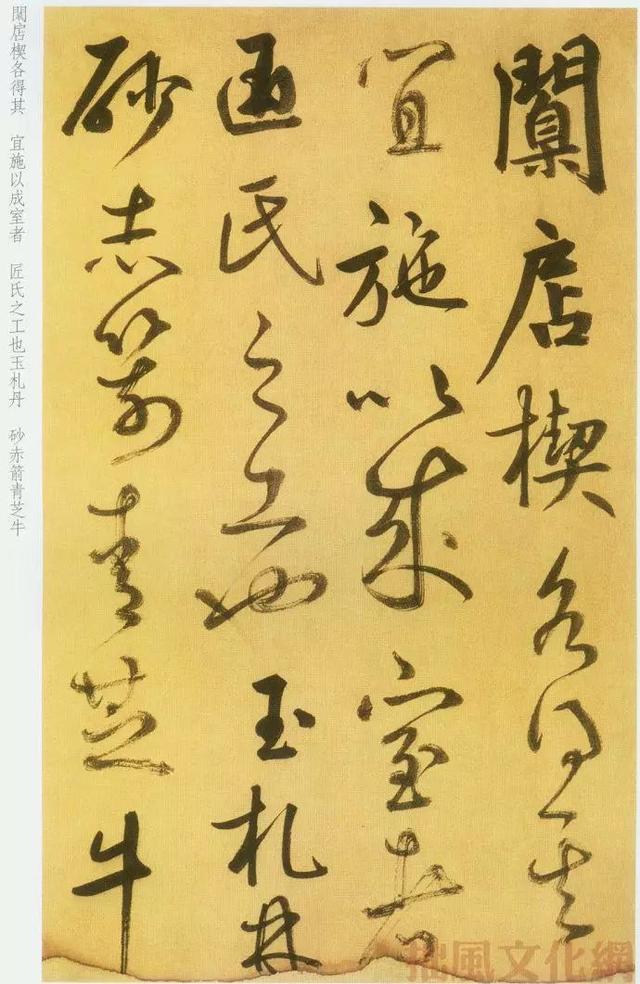 闑扂楔各得其
宜施以成室者
匠氏之工也玉札丹
砂赤箭青芝牛
闑扂楔各得其 宜施以成室者 匠氏之工也玉札丹 砂赤箭青芝牛
拙風文化網